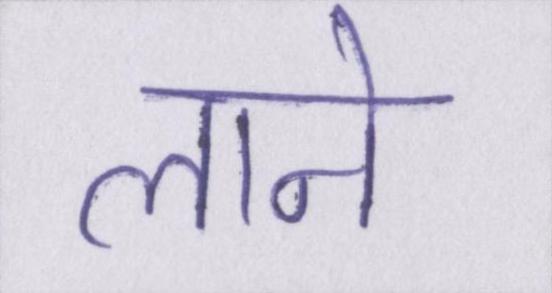 लाने